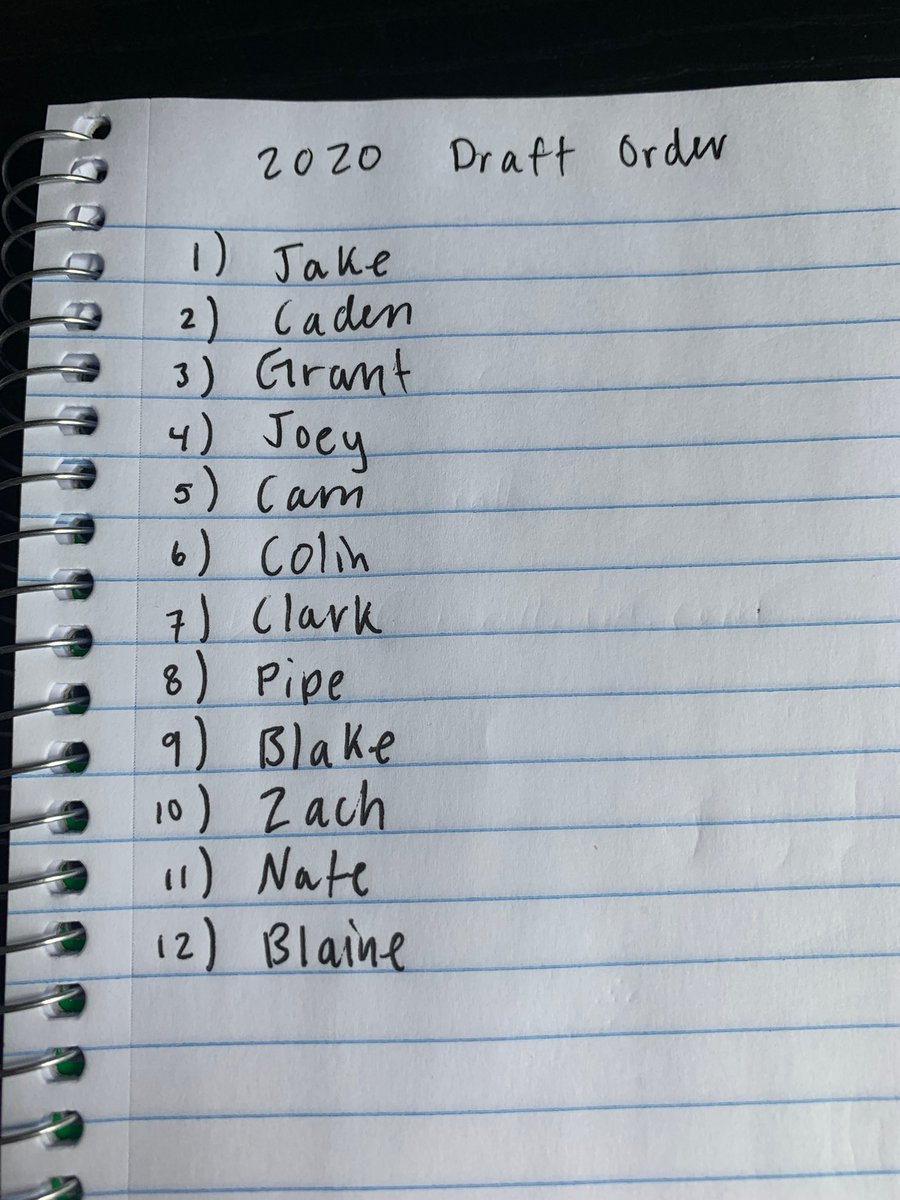 2020 Draft Order
1) Jake
2) Caden
3) Grant
4) Joey
5) Cam
6) Colin
7) Clark
8) Pipe
9) Blake
10) Zach
11) Nate
12) Blaine